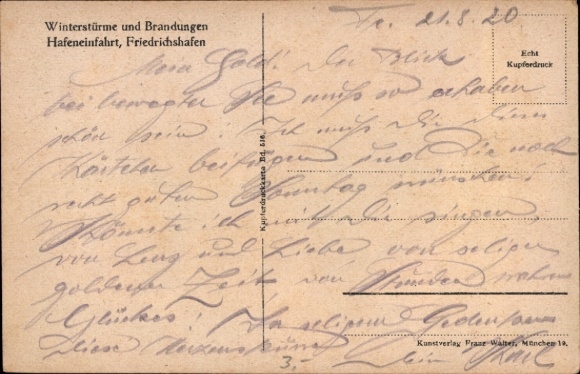 Winterstürme und Brandungen
Hafeneinfahrt, Friedrichshafen
Fr. 21.8.20
Echt
Kupferdruck
Mein Gold! Der Blick
bei bewegter See muß so erhaben
schön sein. Ich muß Dir dieses
Kärtchen beifügen und Dir noch
recht guten Sonntag wünschen!
Könnte ich mit Dir singen,
von Lenz und Liebe, von seliger
goldener Zeit von Stunden wahren
Glückes! In seligem Gedenken
Diese
Dein Karl
Kupferdruckkarte Bd. 516
3.-
Kunstverlag Franz Walter, München 19.